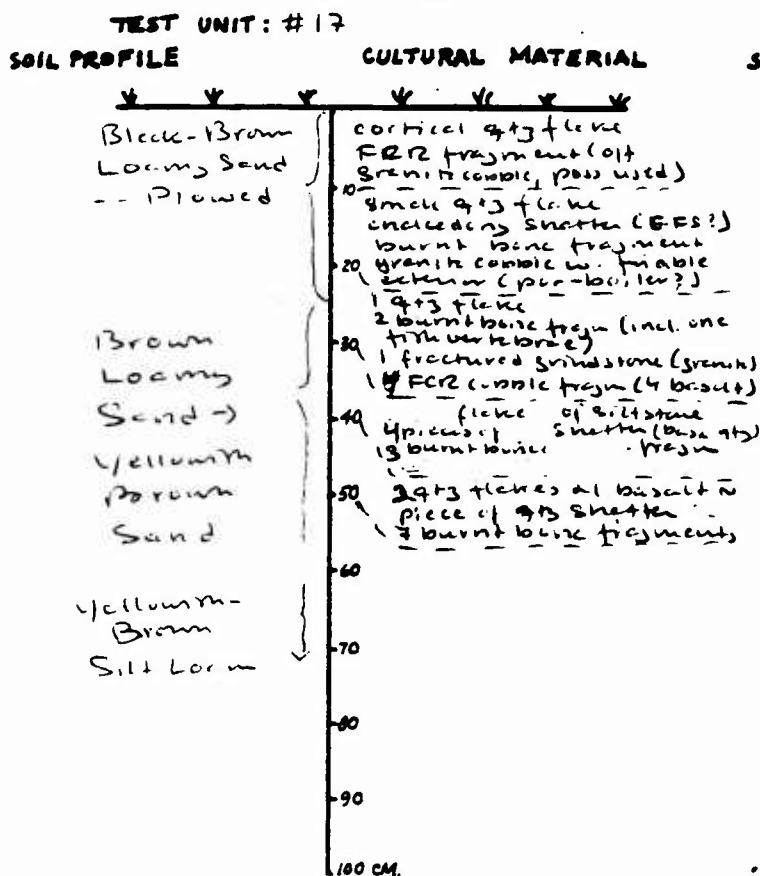 TEST UNIT: #17
SOIL PROFILE
CULTURAL MATERIAL
S
Black-Brown
Loamy Sand
-- Plowed
Brown
Loamy
Sand ->
Yellowish
Brown
Sand
Yellowish-
Brown
Silt Loam
10
20
30
40
50
60
70
80
90
100 CM.
cortical qtz flake
FCR fragment (of
granite cobble, poss used)
small qtz flake
including shatter
burnt bone fragment
granite cobble w. friable
exterior (pot-boiler?)
1 qtz flake
2 burnt bone fragm (incl. one
fish vertebrae)
1 fractured grindstone (granite)
FCR cobble fragm (4 basalt)
flake of siltstone
4 pieces of shatter (bas. qtz)
13 burnt bone fragm
qtz flakes basalt
piece of qtz shatter
7 burnt bone fragments